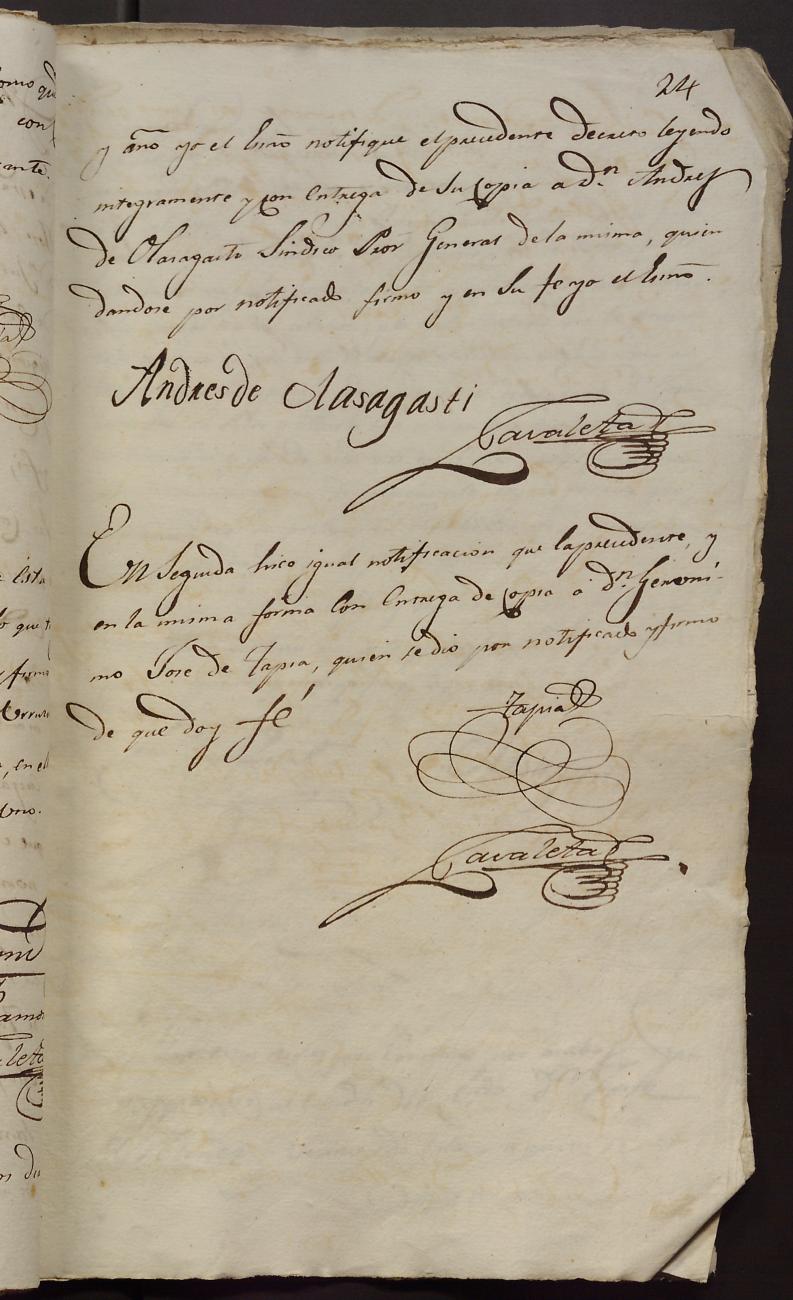 24
y año yo el Esno notifique el precedente decreto leyendo
integramente y con entrega de su copia a Dn. Andres
de Olasagasti Sindico Pror General de la misma, quien
dandose por notificado firmo y en su fe yo el Esno.
Andres de Olasagasti
Zavaleta
En seguida hice igual notificacion que la precedente, y
en la misma forma con entrega de copia a Dn. Geroni-
mo Jose de Tapia, quien se dio por notificado y firmo
de que doy fé
Tapia
Zavaleta